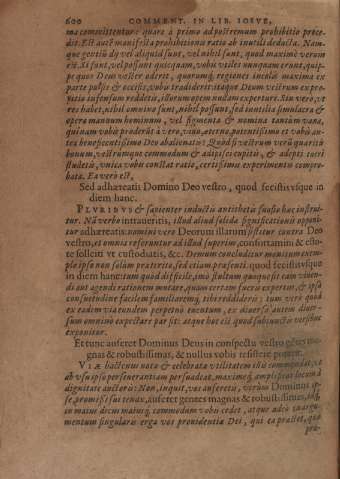 600 COMMENT. IN LIB. IOSVE,
ma committentur: quare à primo ad postremum prohibitio proce-
dit. Est autē manifesta prohibitionis ratio ab inutili deducta. Nam-
que gentiū dij vel aliquid sunt, vel nihil sunt, quod maximè verum
est. Si sunt, vel possunt quicquam, vobis vtiles nunquam erunt, quip-
pe quos Deus vester oderit, quorumq́; regiones incolas maxima ex
parte pulsis & occisis, vobis tradiderit: itaque Deum vestrum expe-
rietis infensum redditis, illorum opem nullam experti. Sin vero, vt
res habet, nihil omnino sunt, nihil possunt, sed inutilia simulacra &
opera manuum hominum, vel figmenta & nomina tantùm vana,
quinam vobis proderūt à vero, viuo, æterno, potentissimo et vobis au-
tem beneficentissimo Deo abalienatis? Quòd si vestrum verū quæritis
bonum, vestrumque commodum & adipisci cupitis, & adepti tueri
studetis, vnica vobis constat ratio, certissimis experimentis compro-
bata. Ea verò est,
Sed adhæreatis Domino Deo vestro, quod fecistis vsque in
diem hanc.
PLVRIBVS & sapienter inductis antithetis suasio hæc instrui-
tur. Nā verbo intraueritis, illud aliud solidæ significationis opponi-
tur adhæreatis: nomini vero Deorum illarum sistitur contra Deo
vestro, et omnia referuntur ad illud superius, confortamini & esto-
te solliciti vt custodiatis, &c. Demum concluditur monitum exem-
plo ipso non solùm præterito, sed etiam præsenti, quod fecistis vsque
in diem hanc: tum quod difficile, imò stultum quoque sit eam viuen-
di aut agendi rationem mutare, quàm certam fueris expertus, & ipsâ
consuetudine facilem familiaremq́; tibi reddideris: tum verò quod
ex eadem via eundem perpetuò euentum, ex diuersa autem diuer-
sum omnino expectare par sit: atque hoc est quod subiunctis versibus
exponitur.
Et tunc auferet Dominus Deus in conspectu vestro gētes ma-
gnas & robustissimas, & nullus vobis resistere poterit.
VIÆ hactenus nota & celebrata vtilitatem suis commendat, et
ab vsu ipso perseuerantiam persuadet, maximeq́; amplificat locum à
dignitate auctoris: Non, inquit, vos auferetis, verùm Dominus ip-
se, promissi sui tenax, auferet gentes magnas & robustissimas, idq́;
in maius dicm maiusq́; commodum vobis cedet, atque adeò in argu-
mentum singularis erga vos prouidentiæ Dei, qui ea præstet, quæ
præ-